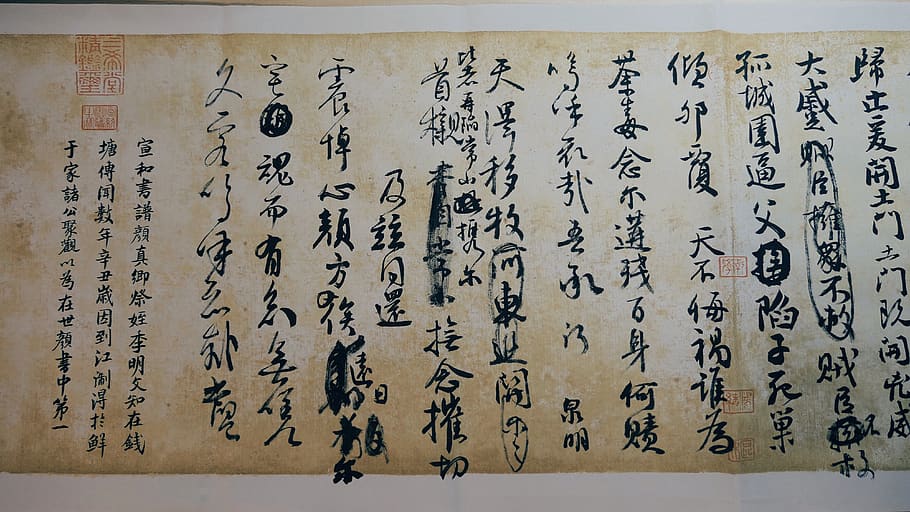 歸止爰開土門土門既開兇威
大蹙賊臣擁衆不救賊臣不救
孤城圍逼父陷子死巢
傾卵覆天不悔禍誰為
荼毒念爾遘殘百身何贖
嗚呼哀哉吾承泉明
天澤移牧河東近河關
比者再陷常山攜爾
首櫬及茲同還
撫念摧切
震悼心顏方俟遠日卜爾
宅魂而有知無嗟
久客嗚呼哀哉尚饗
宣和書譜顏真卿祭姪季明文知在錢
塘傳聞數年辛丑歲因到江浙得於鮮
于家諸公聚觀以為在世顏書中第一
三希堂
精鑑璽